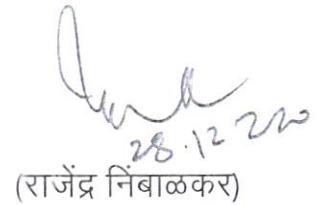 28.12.2020
(राजेंद्र निंबाळकर)